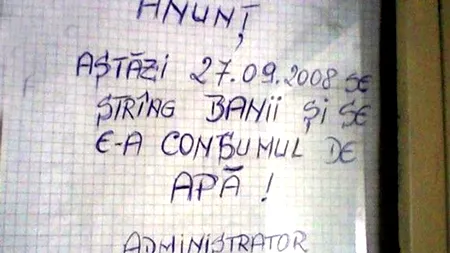 ANUNȚ
AȘTĂZI 27.09.2008 SE
ȘTRÎNG BANII ȘI SE
E-A CONȘUMUL DE
APĂ !
ADMINIȘTRATOR